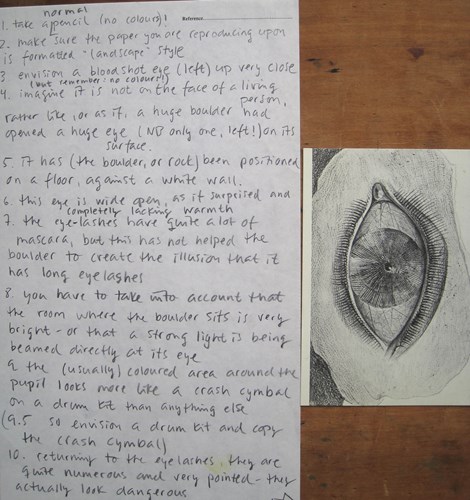 Reference
normal
1. take a pencil (no colours)!
2. make sure the paper you are reproducing upon
is formatted "landscape" style
3 envision a bloodshot eye (left) up very close
(but remember: no colours!)
4. imagine it is not on the face of a living
person,
rather like, or as if, a huge boulder had
opened a huge eye (NB only one, left!) on its
surface.
5. it has (the boulder, or rock) been positioned
on a floor, against a white wall.
6. this eye is wide open, as if surprised and
completely lacking warmth
7. the eye-lashes have quite a lot of
mascara, but this has not helped the
boulder to create the illusion that it
has long eyelashes
8. you have to take into account that
the room where the boulder sits is very
bright - or that a strong light is being
beamed directly at its eye
9 the (usually) coloured area around the
pupil looks more like a crash cymbal
on a drum kit than anything else
(9.5 so envision a drum kit and copy
the crash cymbal)
10. returning to the eyelashes, they are
quite numerous and very pointed - they
actually look dangerous